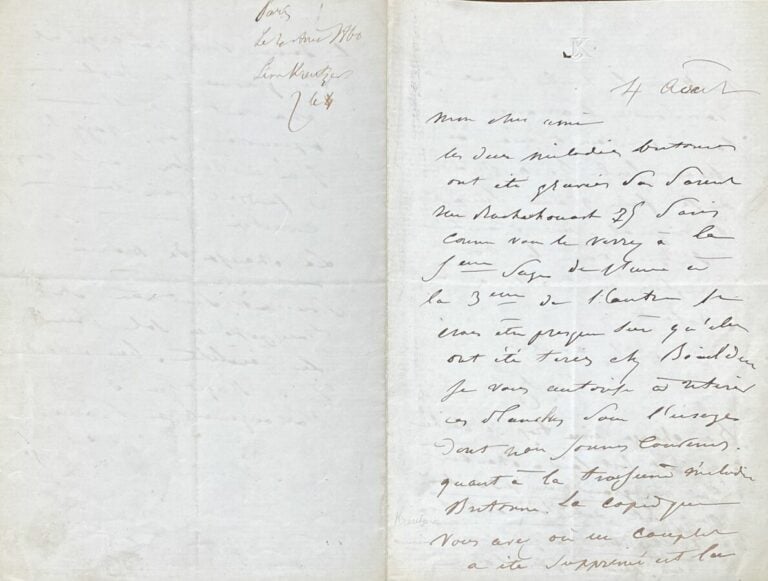 Paris
Le 4 Août 1860
Léon Kreutzer
K
4 Août
Mon cher ami
les deux mélodies bretonnes
ont été gravées par
rue Rochechouart 75 Paris
comme vous le verrez à la
1ere page de l'une et
la 3eme de l'autre. Je
crois être presque sûr qu'elles
ont été tirées chez
Je vous autorise à retirer
ces planches pour l'usage
dont nous sommes convenus.
quant à la troisième mélodie
Bretonne. La copie que
vous avez où un couplet
a été supprimé est la